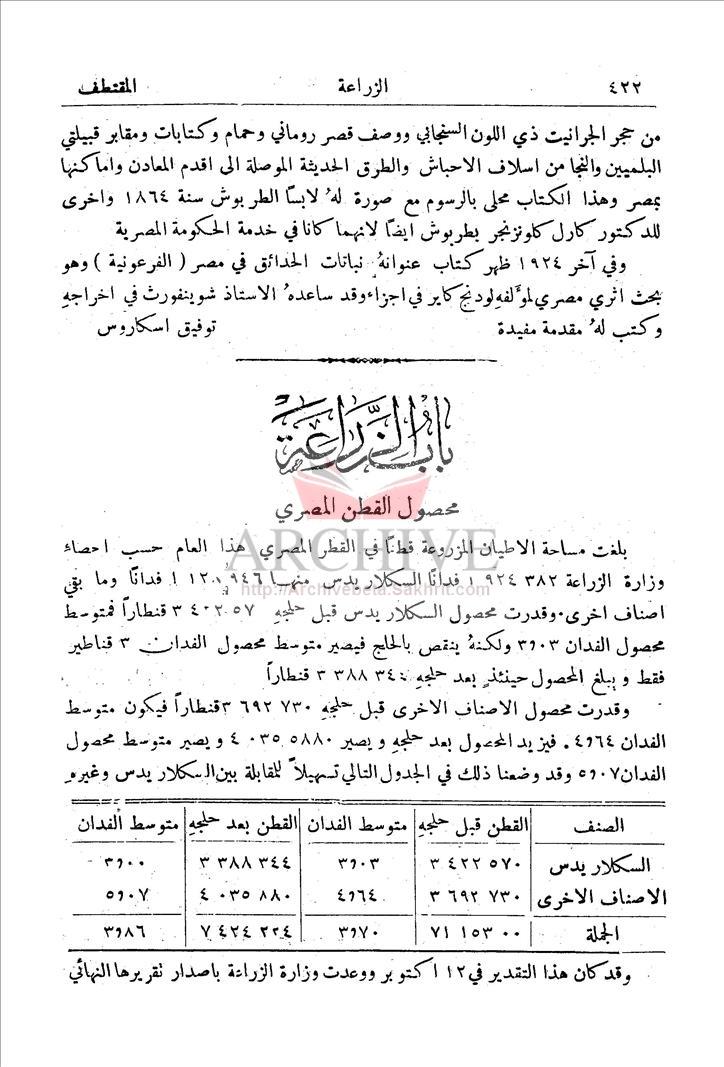 ٤٢٢ الزراعة المقتطف
من حجر الجرانيت ذي اللون السنجابي ووصف قصر روماني وحمام وكتابات ومقابر قبيلتي
البلميين والنجا من اسلاف الاحباش والطرق الحديثة الموصلة الى اقدم المعادن واماكنها
بمصر وهذا الكتاب محلى بالرسوم مع صورة لهُ لابسًا الطربوش سنة ١٨٦٤ واخرى
للدكتور كارل كلونزنجر بطربوش ايضًا لانهما كانا في خدمة الحكومة المصرية
وفي آخر ١٩٢٤ ظهر كتاب عنوانهُ نباتات الحدائق في مصر ( الفرعونية ) وهو
بحث اثري مصري لمؤلفهِ لودنج كاير في اجزاء وقد ساعدهُ الاستاذ شوينفورث في اخراجهِ
وكتب لهُ مقدمة مفيدة توفيق اسكاروس
باب الزراعة
محصول القطن المصري
ARCHIVE
بلغت مساحة الاطيان المزروعة قطنًا في القطر المصري هذا العام حسب احصاء
وزارة الزراعة ٣٨٢ ٩٢٤ ١ فدانًا السكلاريدس منها ٩٤٦ ١٢٠ ١ فدانًا وما بقي
http://Archivebeta.Sakhrit.com
اصناف اخرى. وقدرت محصول السكلاريدس قبل حلجهِ ٥٧ ٤٠٢ ٣ قنطاراً فمتوسط
محصول الفدان ٣٫٠٣ ولكنهُ ينقص بالحليج فيصير متوسط محصول الفدان ٣ قناطير
فقط ويبلغ المحصول حينئذٍ بعد حلجهِ ٣٤٠ ٣٨٨ ٣ قنطاراً
وقدرت محصول الاصناف الاخرى قبل حلجهِ ٧٣٠ ٦٩٢ ٣ قنطاراً فيكون متوسط
الفدان ٤٫٦٤ . فيزيد المحصول بعد حلجهِ ويصير ٥٨٨٠ ٠٣٥ ٤ ويصير متوسط محصول
الفدان ٥٫٠٧ وقد وضعنا ذلك في الجدول التالي تسهيلاً للمقابلة بين السكلاريدس وغيره
الصنف القطن قبل حلجهِ متوسط الفدان القطن بعد حلجهِ متوسط الفدان
السكلاريدس ٥٧٠ ٤٢٢ ٣ ٣٫٠٣ ٣٤٤ ٣٨٨ ٣ ٣٫٠٠
الاصناف الاخرى ٧٣٠ ٦٩٢ ٣ ٤٫٦٤ ٨٨٠ ٠٣٥ ٤ ٥٫٠٧
الجملة ٠٠ ١٥٣ ٧١ ٣٫٧٠ ٢٢٤ ٤٢٤ ٧ ٣٫٨٦
وقد كان هذا التقدير في ١٢ اكتوبر ووعدت وزارة الزراعة باصدار تقريرها النهائي